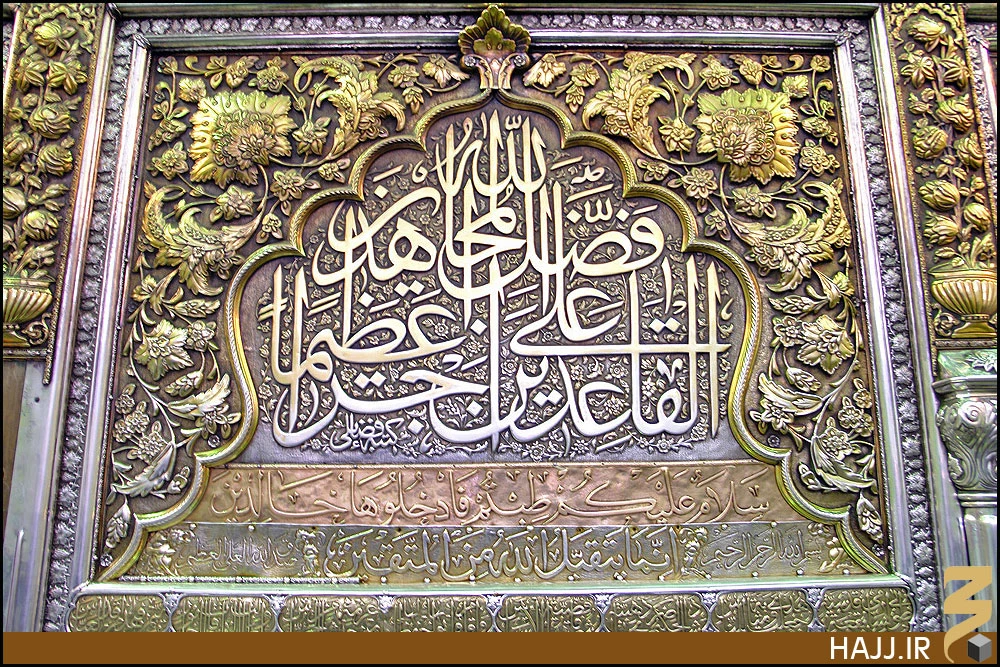 فَضَّلَ اللهُ المُجاهِدینَ عَلَی القاعِدینَ اَجراً عَظیماً
کتبه فضائلی
سَلامٌ عَلَیکُم طِبتُم فَادخُلُوها خالِدین
بسم الله الرحمن الرحیم اِنَّما یَتَقَبَّلُ اللهُ مِنَ المُتَّقینَ صدق الله العلی العظیم
HAJJ.IR